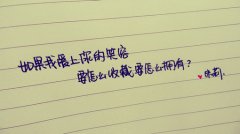 如果我爱上你的笑容
要怎么收藏要怎么拥有？